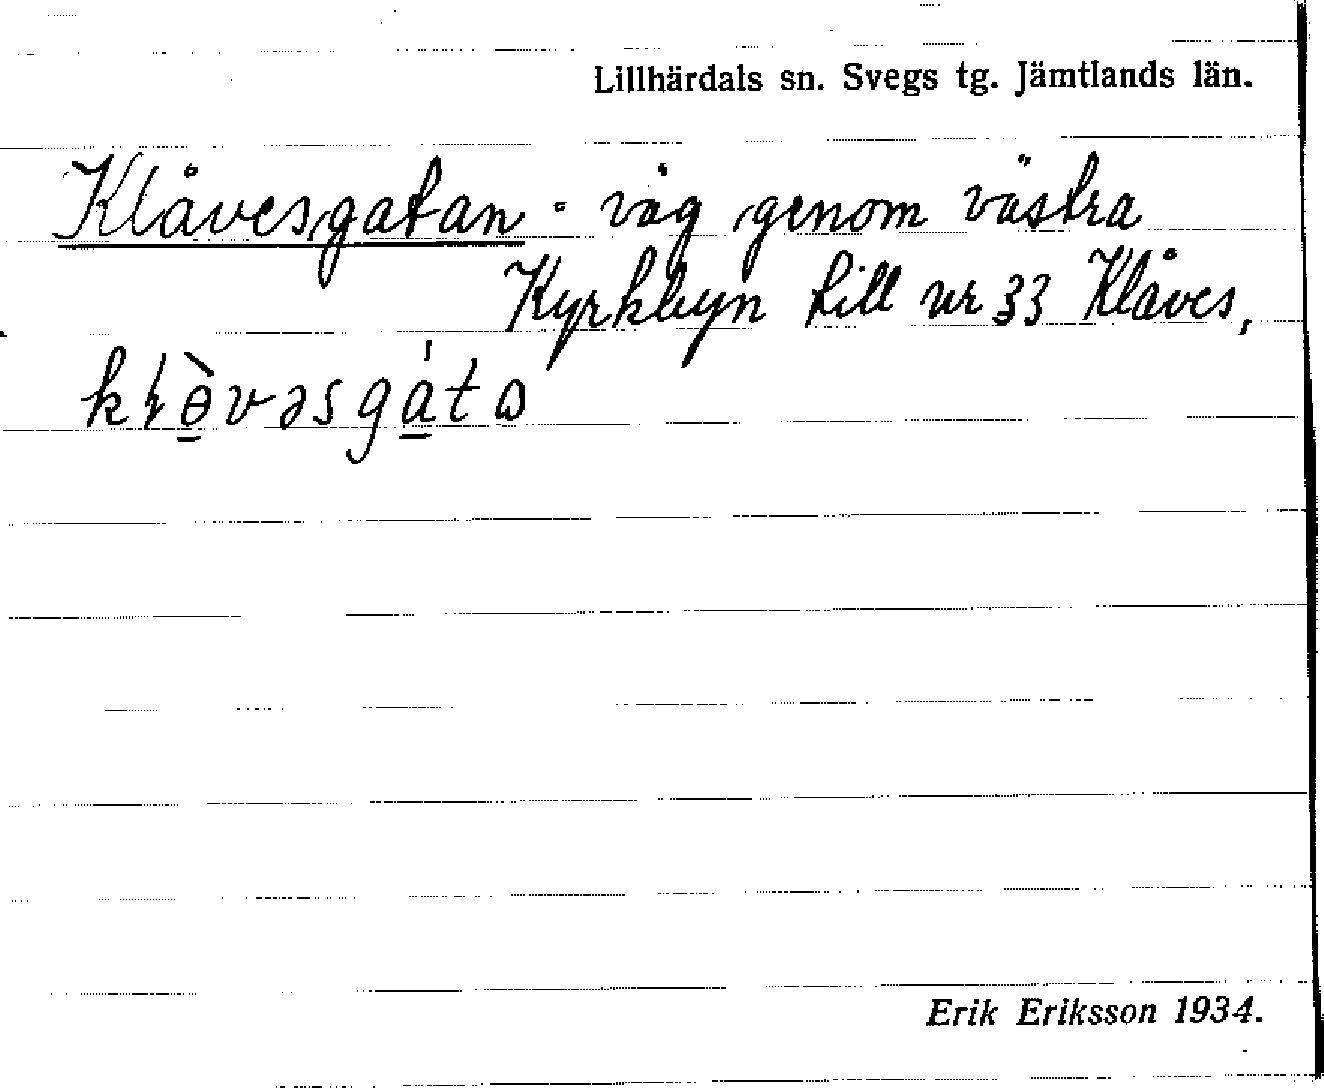 Lillhärdals sn. Svegs tg. Jämtlands län.
Klåvesgatan - väg genom västra
Kyrkbyn till nr 33 Klåves,
kłɵ̠̀vəsga̠̍tɷ
Erik Eriksson 1934.